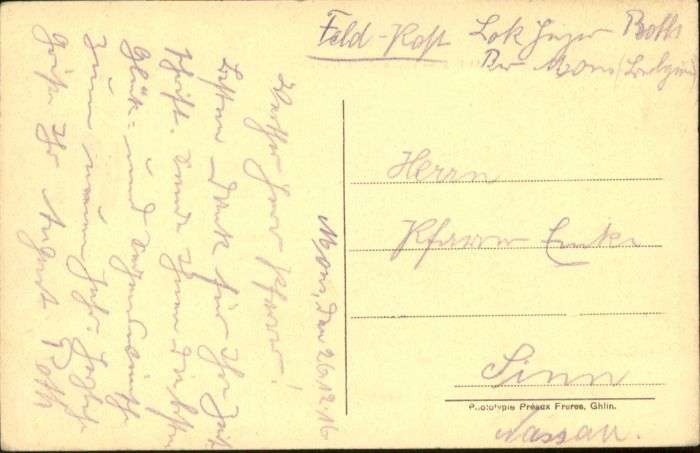 Feld-Post Lok heizer Roth
Bw Mons (Belgien)
Mons, den 26.12.16
Werther Herr Pfarrer!
Besten Dank für Ihre Zeit
schrift. Sende Ihnen die besten
Glück- und Segenswünsche
zum neuen Jahr. Herzliche
Grüße Ihr August Roth
Herrn
Pfarrer
Sinn
Nassau.
Phototypie Préaux Frères, Ghlin.